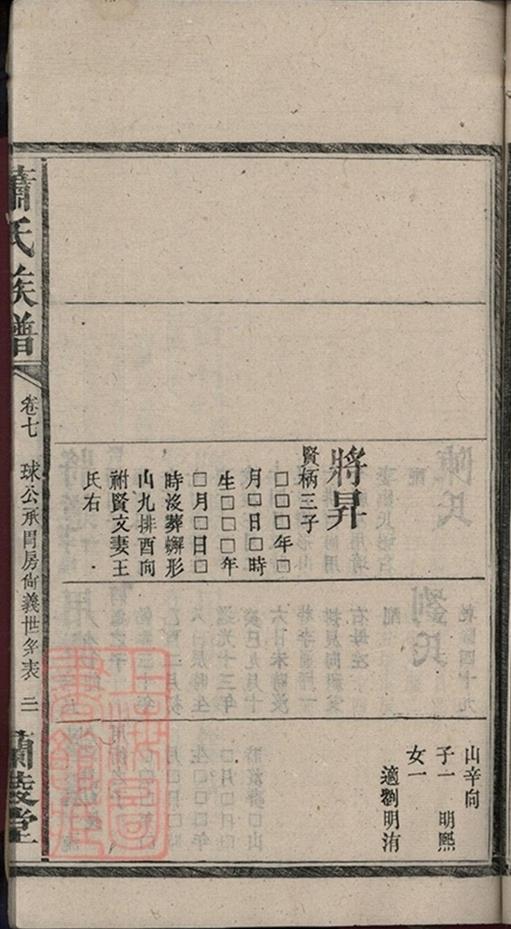 將昇
賢柄三子
□□□年□
月□日□時
生□□□年
□月□日□
時沒葬蠏形
山九排酉向
祔賢文妻王
氏右
山辛向
子一 明熙
女一
適劉明洧
蕭氏族譜
卷七 球公承胃房尙義世系表 三
蘭陵堂